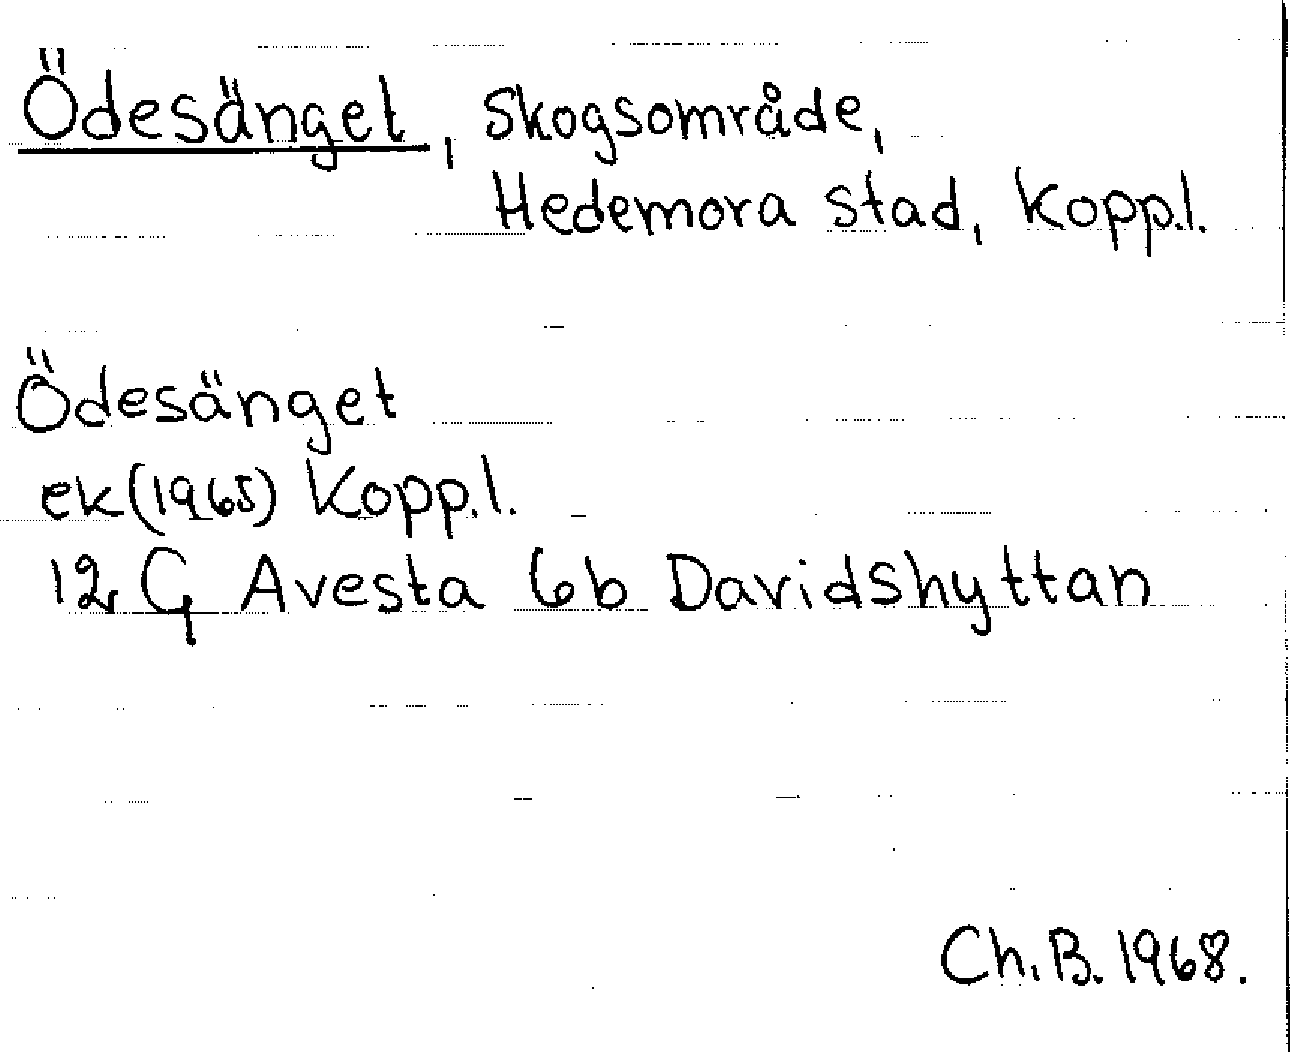 Ödesänget, Skogsområde,
Hedemora stad, Kopp.l.
Ödesänget
ek (1965) Kopp.l.
12 G Avesta 6b Davidshyttan
Ch.B. 1968.